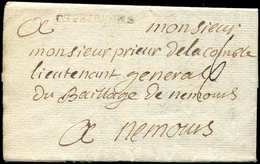 A monsieur
monsieur prieur de la comble
lieutenant general
du Bailliage de nemours
A nemours